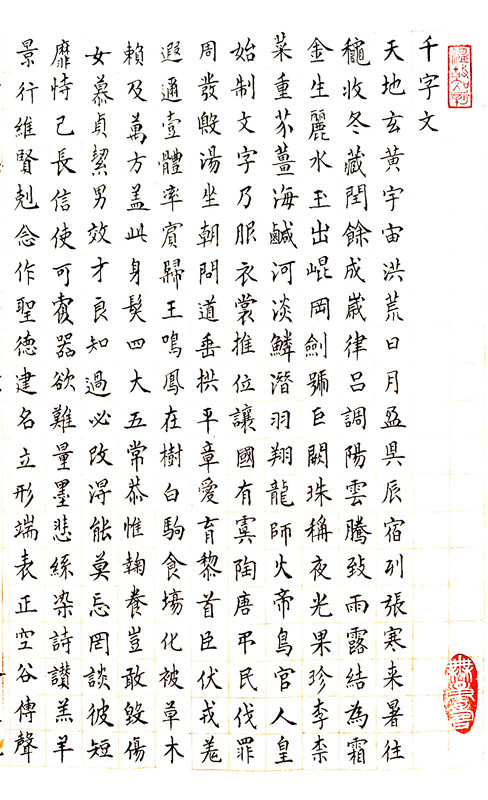 千字文
天地玄黃宇宙洪荒日月盈昃辰宿列張寒来暑往
龝收冬藏閏餘成嵗律吕調陽雲騰致雨露結為霜
金生麗水玉出崐岡劍號巨闕珠稱夜光果珍李柰
菜重芥薑海鹹河淡鱗潛羽翔龍師火帝鳥官人皇
始制文字乃服衣裳推位讓國有虞陶唐弔民伐罪
周發殷湯坐朝問道垂拱平章愛育黎首臣伏戎羌
遐邇壹體率賓歸王鳴鳳在樹白駒食場化被草木
賴及萬方盖此身髮四大五常恭惟鞠養豈敢毀傷
女慕貞絜男效才良知過必改得能莫忘罔談彼短
靡恃己長信使可覆器欲難量墨悲絲染詩讚羔羊
景行維賢剋念作聖德建名立形端表正空谷傳聲